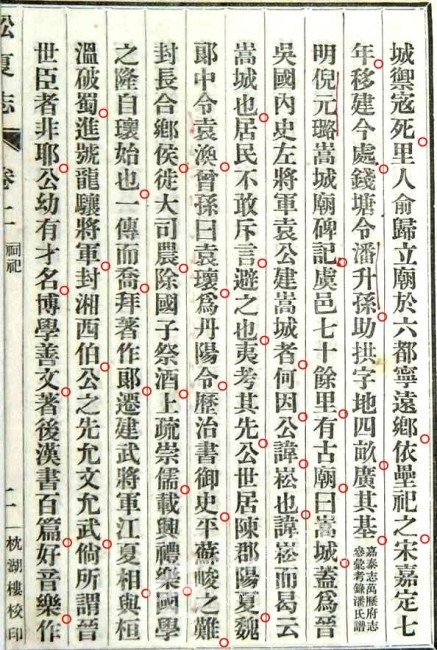 城禦寇死里人俞歸立廟於六都寧遠鄉依壘祀之宋嘉定七
年移建今處錢塘令潘升孫助拱字地四畝廣其基
嘉泰志萬歷府志
參彙考錄潘氏譜
明倪元璐嵩城廟碑記虞邑七十餘里有古廟曰嵩城蓋爲晉
吳國內史左將軍袁公建嵩城者何因公諱崧也諱崧而曷云
嵩城也居民不敢斥言避之也夷考其先公世居陳郡陽夏魏
郞中令袁渙曾孫曰袁瓌爲丹陽令歷治書御史平蘇峻之難
封長合鄉侯徙大司農除國子祭酒上疏崇儒載興禮樂國學
之隆自瓌始也一傳而喬拜著作郞遷建武將軍江夏相與桓
溫破蜀進號龍驤將軍封湘西伯公之先允文允武倘所謂晉
世臣者非耶公幼有才名博學善文著後漢書百篇好音樂作
松夏志
卷二
祠祀
二
枕湖樓校印